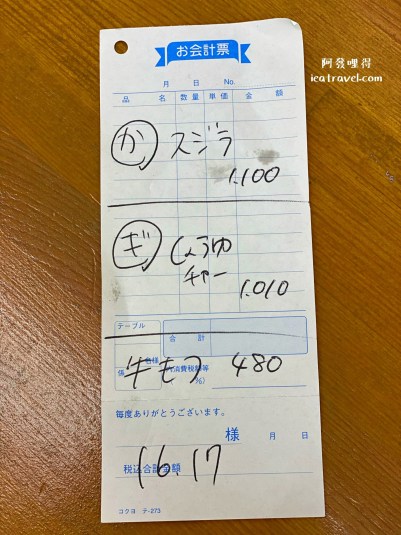 お会計票
阿發哩得
icatravel.com
月 日 No.
品 名 数量 単価 金 額
か スジラ
1.100
ギ しょうゆ
チャー
1.010
テーブル
合 計
様
張
消費税額等
%)
牛もつ 480
毎度ありがとうございます。
様 月 日
税込合計金額
16.17
コクヨ テ-273